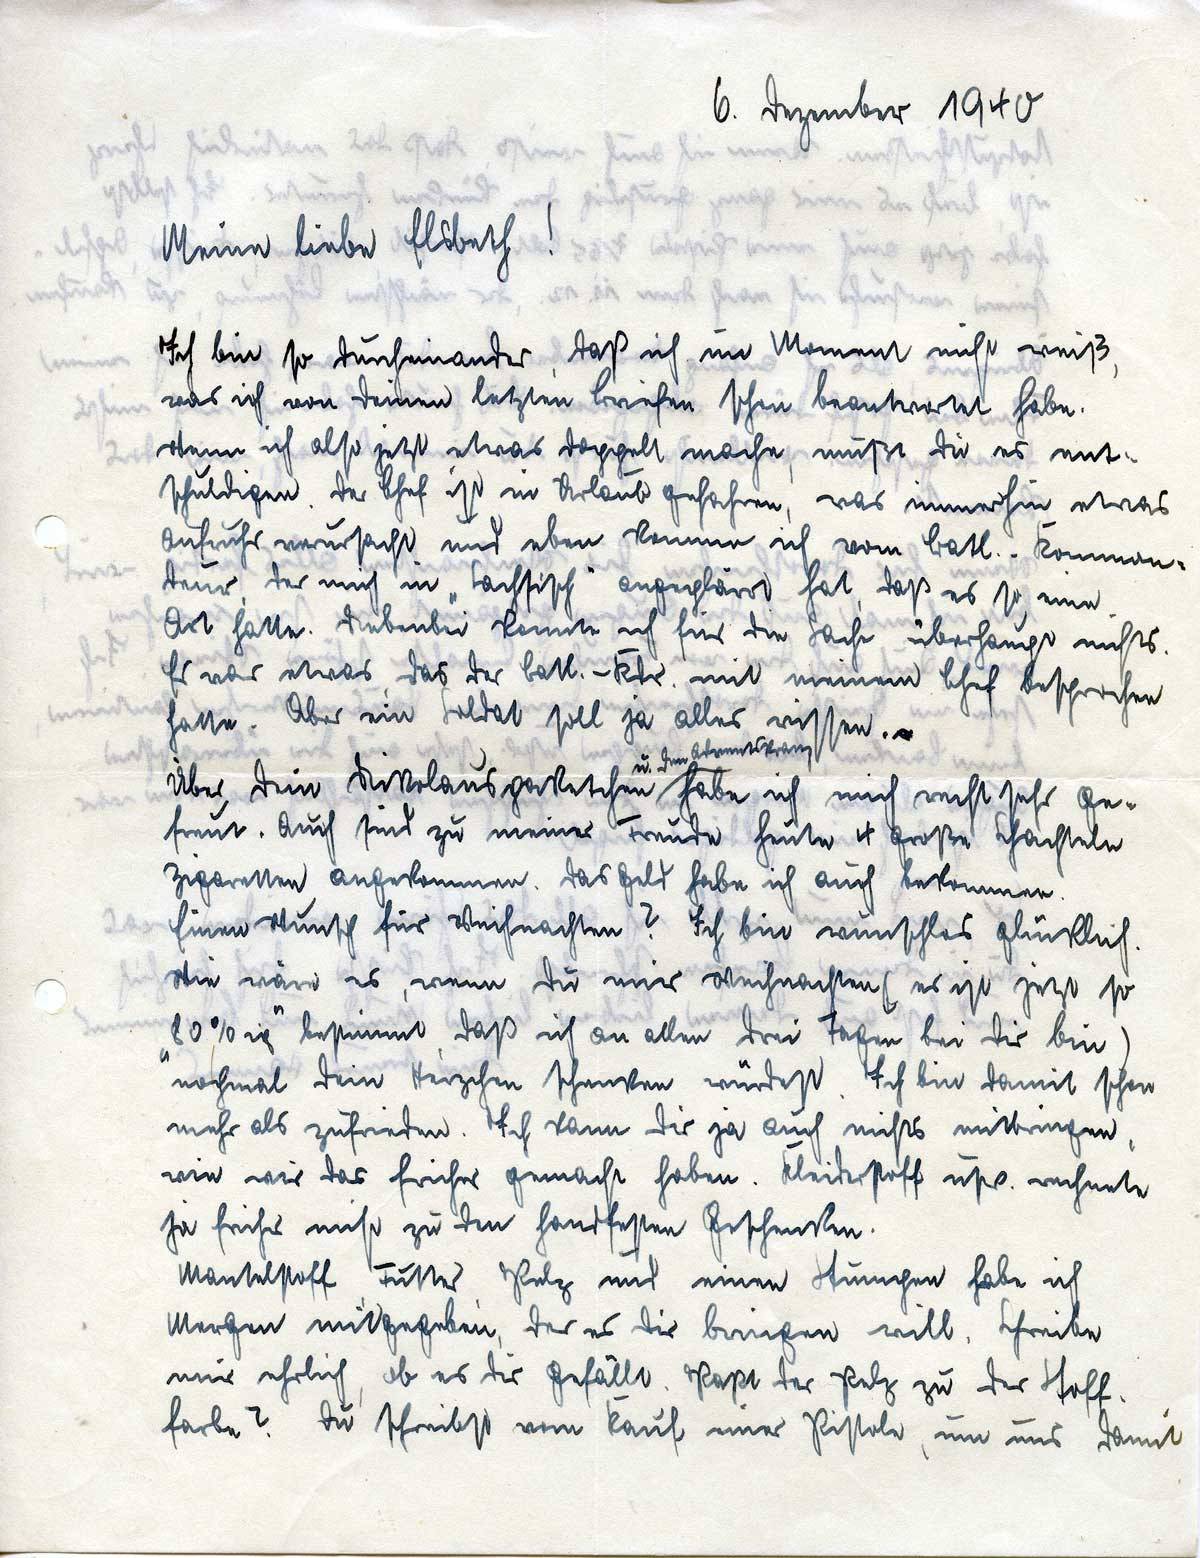 6. Dezember 1940
Meine liebe Elsbeth!
Ich bin so durcheinander, daß ich im Moment nicht weiß,
was ich von Deinen letzten Briefen schon beantwortet habe.
Wenn ich also jetzt etwas doppelt mache, mußt Du es ent-
schuldigen. Der Chef ist in Urlaub gefahren, was immerhin etwas
Aufruhr verursacht und eben komme ich vom Batl.-Komman-
deur, der mich in „Sächsisch" angeplärrt hat, daß es so eine
Art hatte. Nebenbei konnte ich für die Sache überhaupt nichts.
Es war etwas, das der Batl.-Kdr. mit meinem Chef besprochen
hatte. Aber ein Soldat soll ja alles wissen.-
u. den Adventskranz
Über Dein Nikolauspaketchen habe ich mich recht sehr ge-
freut. Auch sind zu meiner Freude heute 4 große Schachteln
Zigaretten angekommen. Das Geld habe ich auch bekommen.
Einen Wunsch für Weihnachten? Ich bin wunschlos glücklich.
Wie wäre es, wenn Du mir Weihnachten (es ist jetzt so
80%ig" bestimmt, daß ich an allen drei Tagen bei Dir bin)
"nochmal Dein Herzchen schenken würdest. Ich bin damit schon
mehr als zufrieden. Ich kann Dir ja auch nichts mitbringen,
wie wir das früher gemacht haben. Kleiderstoff usw. rechnete
ja früher nicht zu den handfesten Geschenken.
Mantelstoff, Futter, Pelz und einen Stumpen habe ich
Mergen mitgegeben, der es Dir bringen will. Schreibe
mir ehrlich, ob es Dir gefällt. Paßt der Pelz zu der Stoff-
farbe? Du schreibst vom Kauf einer Pistole, um uns damit